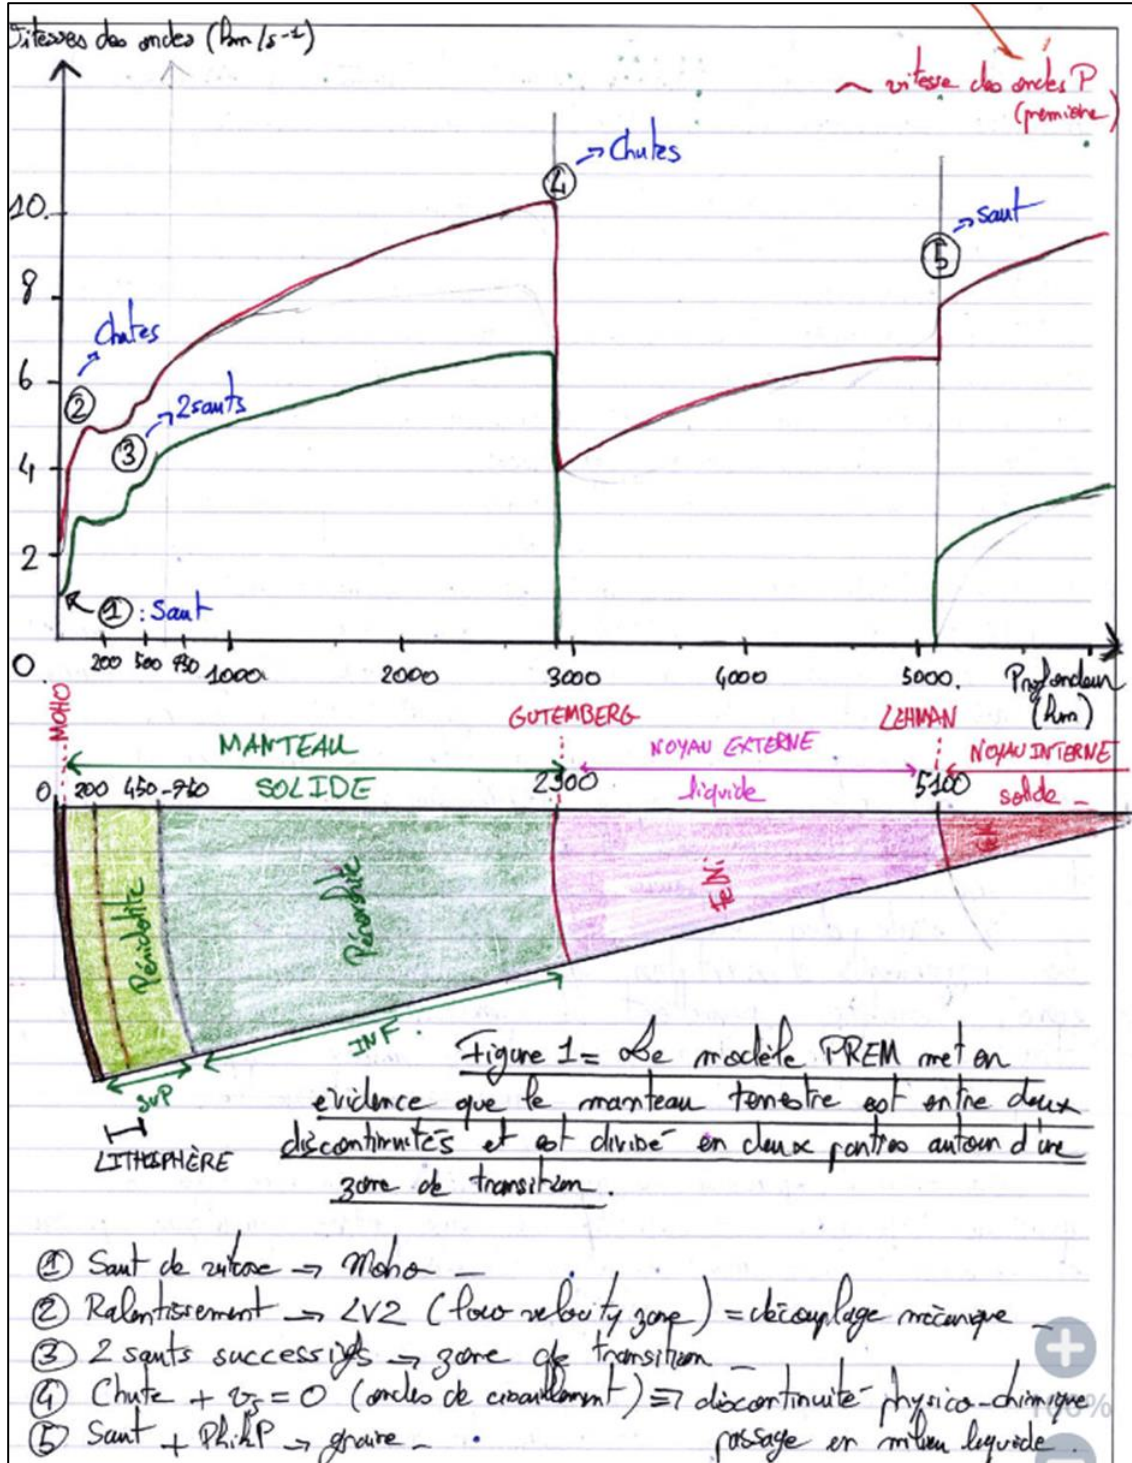 Vitesses des ondes (km/s-1)
vitesse des ondes P
(première)
④ → Chutes
⑤ → saut
② → Chutes
③ → 2 sauts
① : Saut
10
8
6
4
2
0. 200 500 750 1000 2000 3000 4000 5000. Profondeur
(km)
MOHO GUTEMBERG LEHMAN
MANTEAU NOYAU EXTERNE NOYAU INTERNE
SOLIDE liquide solide
0 200 450-750 2900 5100
Péridotite
FeNi
SUP
INF.
LITHOSPHÈRE
Figure 1 = Le modèle PREM met en
evidence que le manteau terrestre est entre deux
discontinuités et est divisé en deux parties autour d'une
zone de transition.
① Saut de vitesse → Moho
② Ralentissement → LVZ (low velocity zone) = découplage mécanique
③ 2 sauts successifs → zone de transition
④ Chute + vs = 0 (ondes de cisaillement) ⇒ discontinuité physico-chimique
passage en milieu liquide.
⑤ Saut + PkikP → graine